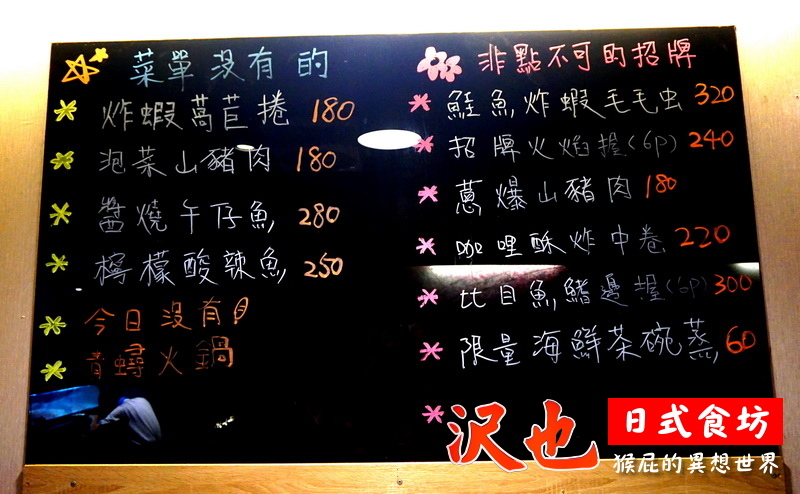 菜單沒有的
炸蝦萵苣捲 180
泡菜山豬肉 180
醬燒午仔魚 280
檸檬酸辣魚 250
今日沒有
青蟳火鍋
非點不可的招牌
鮭魚炸蝦毛毛虫 320
招牌火焰握(6p) 240
蔥爆山豬肉 180
咖哩酥炸中卷 220
比目魚鰭邊握(6p) 300
限量海鮮茶碗蒸 60
沢也
日式食坊
猴屁的異想世界